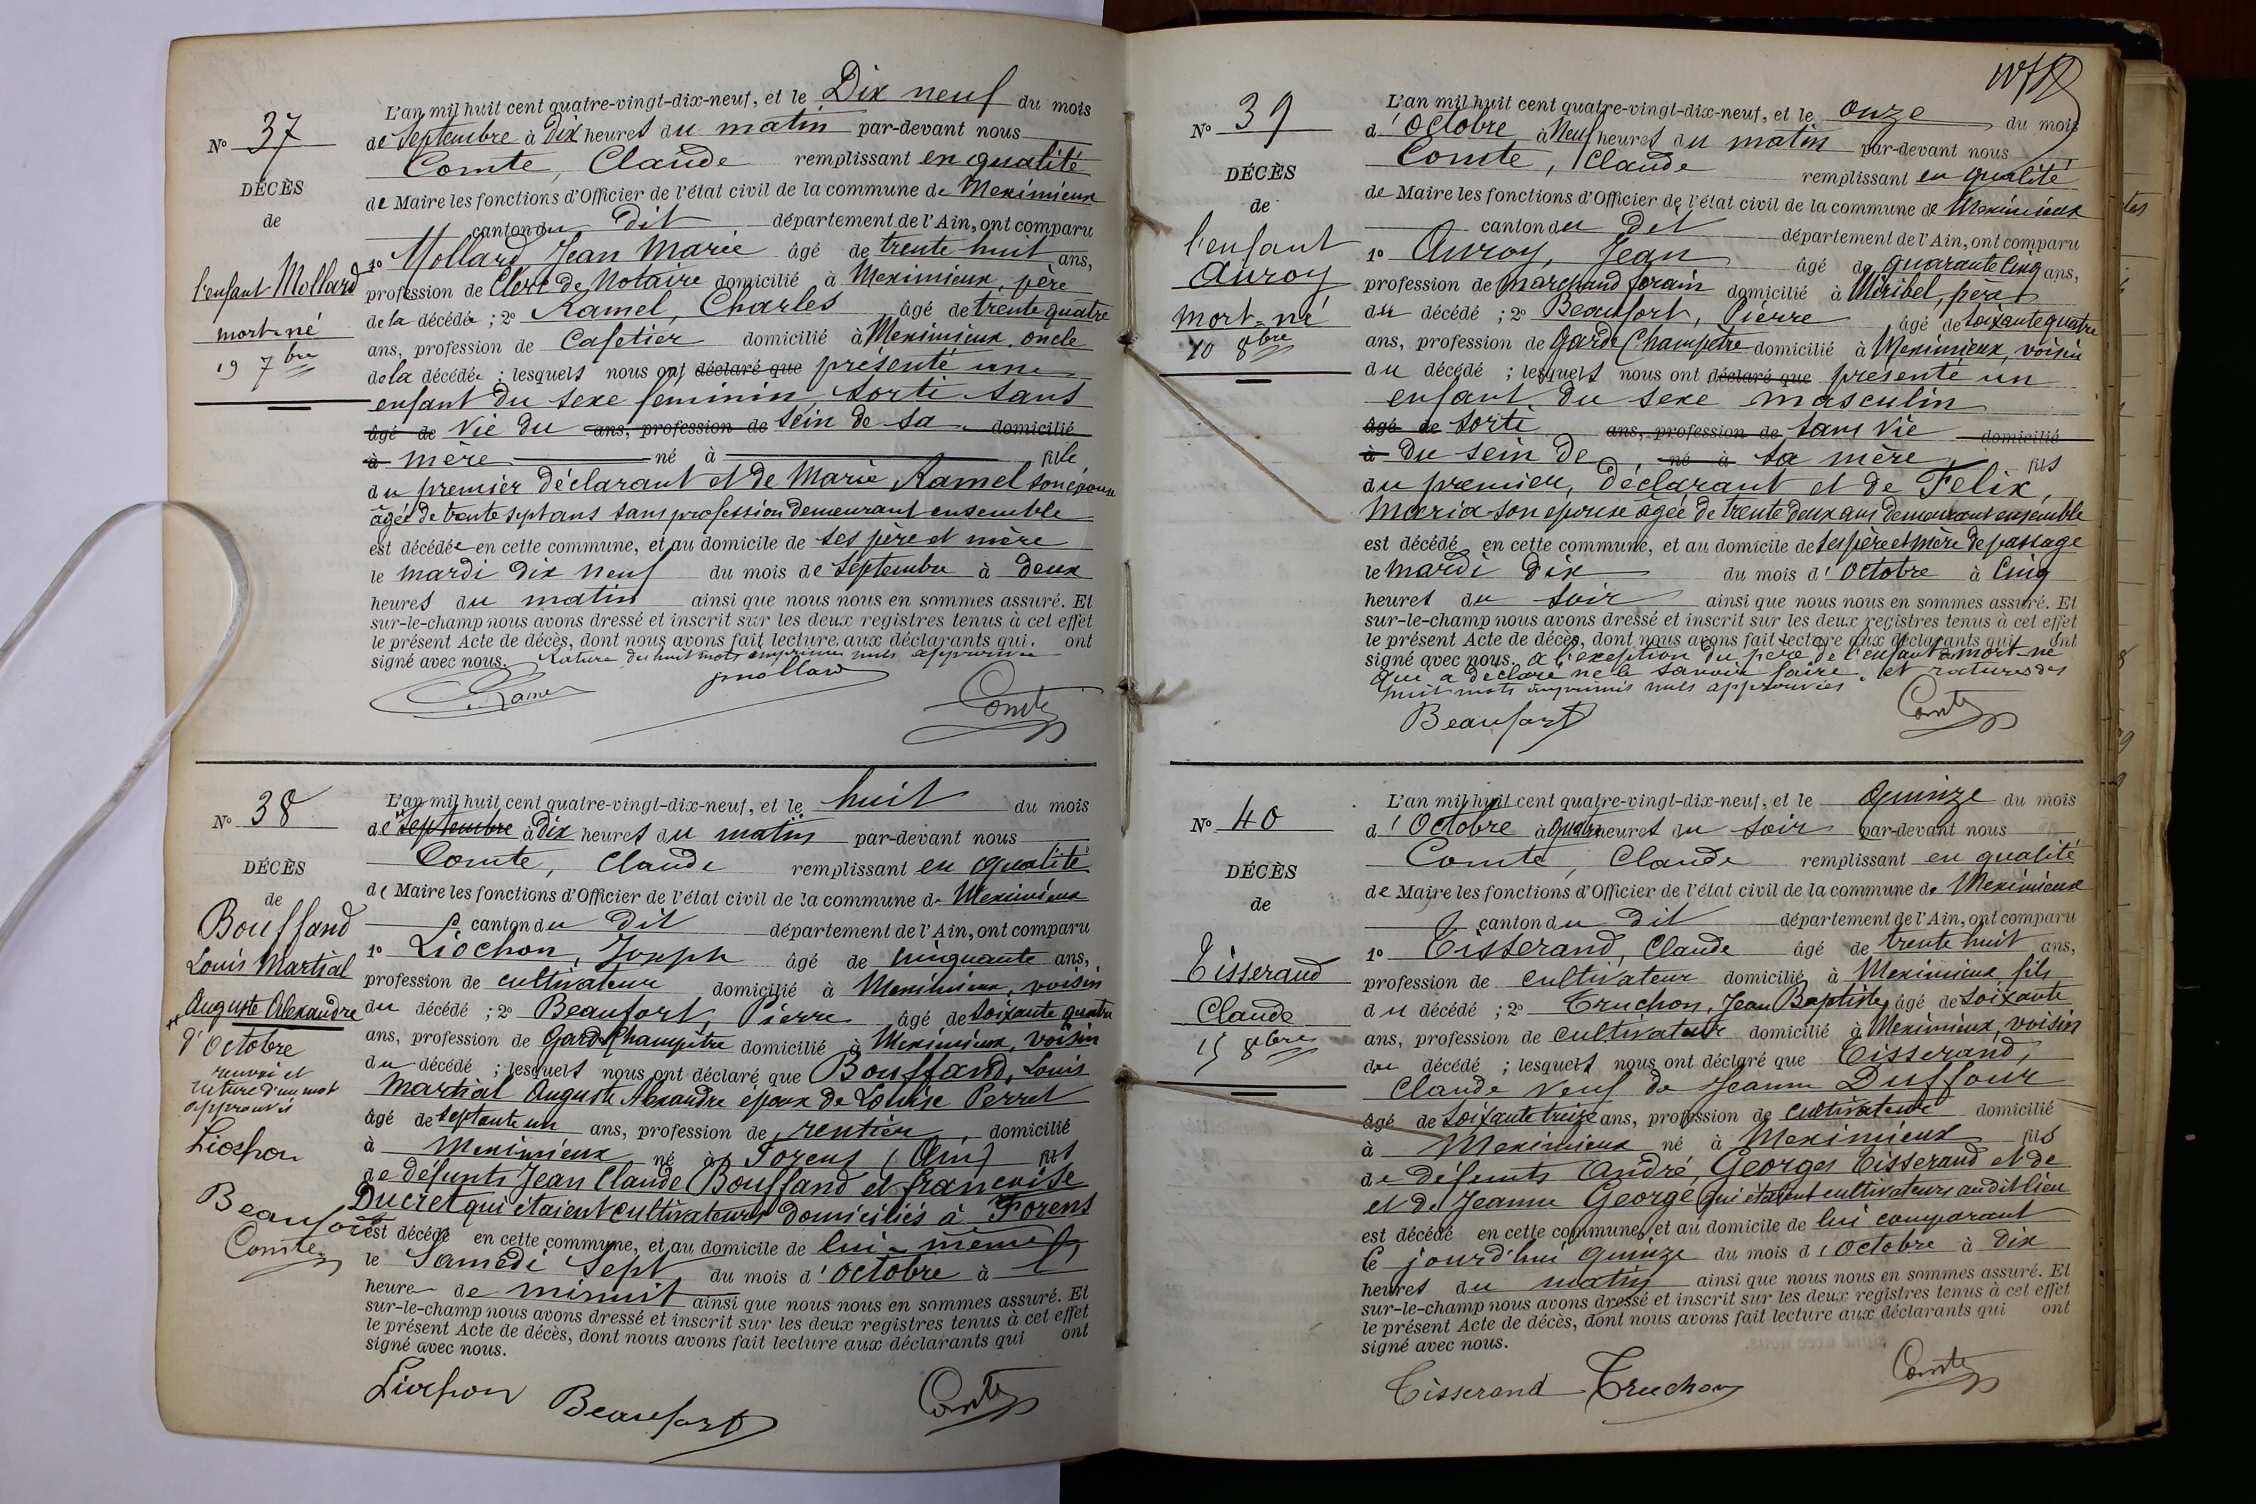 N° 37
DÉCÈS
de
l'enfant Mollard
mort-né
19 7bre
L'an mil huit cent quatre-vingt-dix-neuf, et le Dix neuf du mois
de Septembre à Dix heures du matin par-devant nous
Comte, Claude remplissant en qualité
de Maire les fonctions d'Officier de l'état civil de la commune de Meximieux
canton du dit département de l'Ain, ont comparu
1° Mollard Jean Marie âgé de trente huit ans,
profession de Clerc de Notaire domicilié à Meximieux, père
de la décédée ; 2° Ramel, Charles âgé de trente quatre
ans, profession de Cafetier domicilié à Meximieux, oncle
de la décédée ; lesquels nous ont déclaré que présenté une
enfant du sexe feminin, sorti sans
âgé de vie du ans, profession de sein de sa domicilié
à mère né à fille
du premier déclarant et de Marie Ramel son épouse
âgée de trente sept ans sans profession demeurant ensemble
est décédée en cette commune, et au domicile de ses père et mère
le mardi dix neuf du mois de Septembre à deux
heures du matin ainsi que nous nous en sommes assuré. Et
sur-le-champ nous avons dressé et inscrit sur les deux registres tenus à cet effet
le présent Acte de décès, dont nous avons fait lecture aux déclarants qui ont
signé avec nous. Rature des huit mots imprimés nuls approuvée
C. Ramel jmollard Comte
N° 38
DÉCÈS
de
Bouffand
Louis Martial
Auguste Alexandre
d'Octobre
renvoi et
rature d'un mot
approuvés
Liochon
Beaufort
Comte
L'an mil huit cent quatre-vingt-dix-neuf, et le huit du mois
de Septembre à Dix heures du matin par-devant nous
Comte, Claude remplissant en qualité
de Maire les fonctions d'Officier de l'état civil de la commune de Meximieux
canton du dit département de l'Ain, ont comparu
1° Liochon, Joseph âgé de cinquante ans,
profession de cultivateur domicilié à Meximieux, voisin
du décédé ; 2° Beaufort, Pierre âgé de soixante quatre
ans, profession de Garde Champêtre domicilié à Meximieux, voisin
du décédé ; lesquels nous ont déclaré que Bouffand, Louis
Martial Auguste Alexandre époux de Louise Perret
âgé de septante un ans, profession de rentier domicilié
à Meximieux né à Forens (Ain) fils
de défunts Jean Claude Bouffand et françoise
Ducret qui étaient cultivateurs domiciliés à Forens
est décédé en cette commune, et au domicile de lui-même
le Samedi Sept du mois d'Octobre à l'
heure de minuit ainsi que nous nous en sommes assuré. Et
sur-le-champ nous avons dressé et inscrit sur les deux registres tenus à cet effet
le présent Acte de décès, dont nous avons fait lecture aux déclarants qui ont
signé avec nous.
Liochon Beaufort Comte
N° 39
DÉCÈS
de
l'enfant
Auroy
mort-né
10 8bre
L'an mil huit cent quatre-vingt-dix-neuf, et le onze du mois
d'Octobre à Neuf heures du matin par-devant nous
Comte, Claude remplissant en qualité
de Maire les fonctions d'Officier de l'état civil de la commune de Meximieux
canton du dit département de l'Ain, ont comparu
1° Auroy, Jean âgé de quarante cinq ans,
profession de marchand forain domicilié à Miribel, père
du décédé ; 2° Beaufort, Pierre âgé de soixante quatre
ans, profession de Garde Champêtre domicilié à Meximieux, voisin
du décédé ; lesquels nous ont déclaré que présenté un
enfant du sexe masculin
âgé de sorti ans, profession de sans vie domicilié
à du sein de né à sa mère, fils
du premier, déclarant et de Felix,
Maria son épouse âgée de trente deux ans demeurant ensemble
est décédé en cette commune, et au domicile de ses père et mère de passage
le mardi dix du mois d'Octobre à Cinq
heures du soir ainsi que nous nous en sommes assuré. Et
sur-le-champ nous avons dressé et inscrit sur les deux registres tenus à cet effet
le présent Acte de décès, dont nous avons fait lecture aux déclarants qui ont
signé avec nous. à l'exception du père de l'enfant mort-né
qui a déclaré ne le savoir faire. et ratures des
huit mots imprimés nuls approuvées
Beaufort Comte
N° 40
DÉCÈS
de
Tisserand
Claude
15 8bre
L'an mil huit cent quatre-vingt-dix-neuf, et le Quinze du mois
d'Octobre à quatre heures du soir par-devant nous
Comte, Claude remplissant en qualité
de Maire les fonctions d'Officier de l'état civil de la commune de Meximieux
canton du dit département de l'Ain, ont comparu
1° Tisserand, Claude âgé de trente huit ans,
profession de cultivateur domicilié à Meximieux fils
du décédé ; 2° Truchon, Jean Baptiste, âgé de soixante
ans, profession de cultivateur domicilié à Meximieux, voisin
du décédé ; lesquels nous ont déclaré que Tisserand,
Claude veuf de Jeanne Duffour
âgé de soixante treize ans, profession de cultivateur domicilié
à Meximieux né à Meximieux fils
de défunts André, Georges Tisserand et de
et de Jeanne George qui étaient cultivateurs audit lieu
est décédé en cette commune, et au domicile de lui comparant
Ce jourd'hui quinze du mois d'Octobre à Dix
heures du matin ainsi que nous nous en sommes assuré. Et
sur-le-champ nous avons dressé et inscrit sur les deux registres tenus à cet effet
le présent Acte de décès, dont nous avons fait lecture aux déclarants qui ont
signé avec nous.
Tisserand Truchon Comte